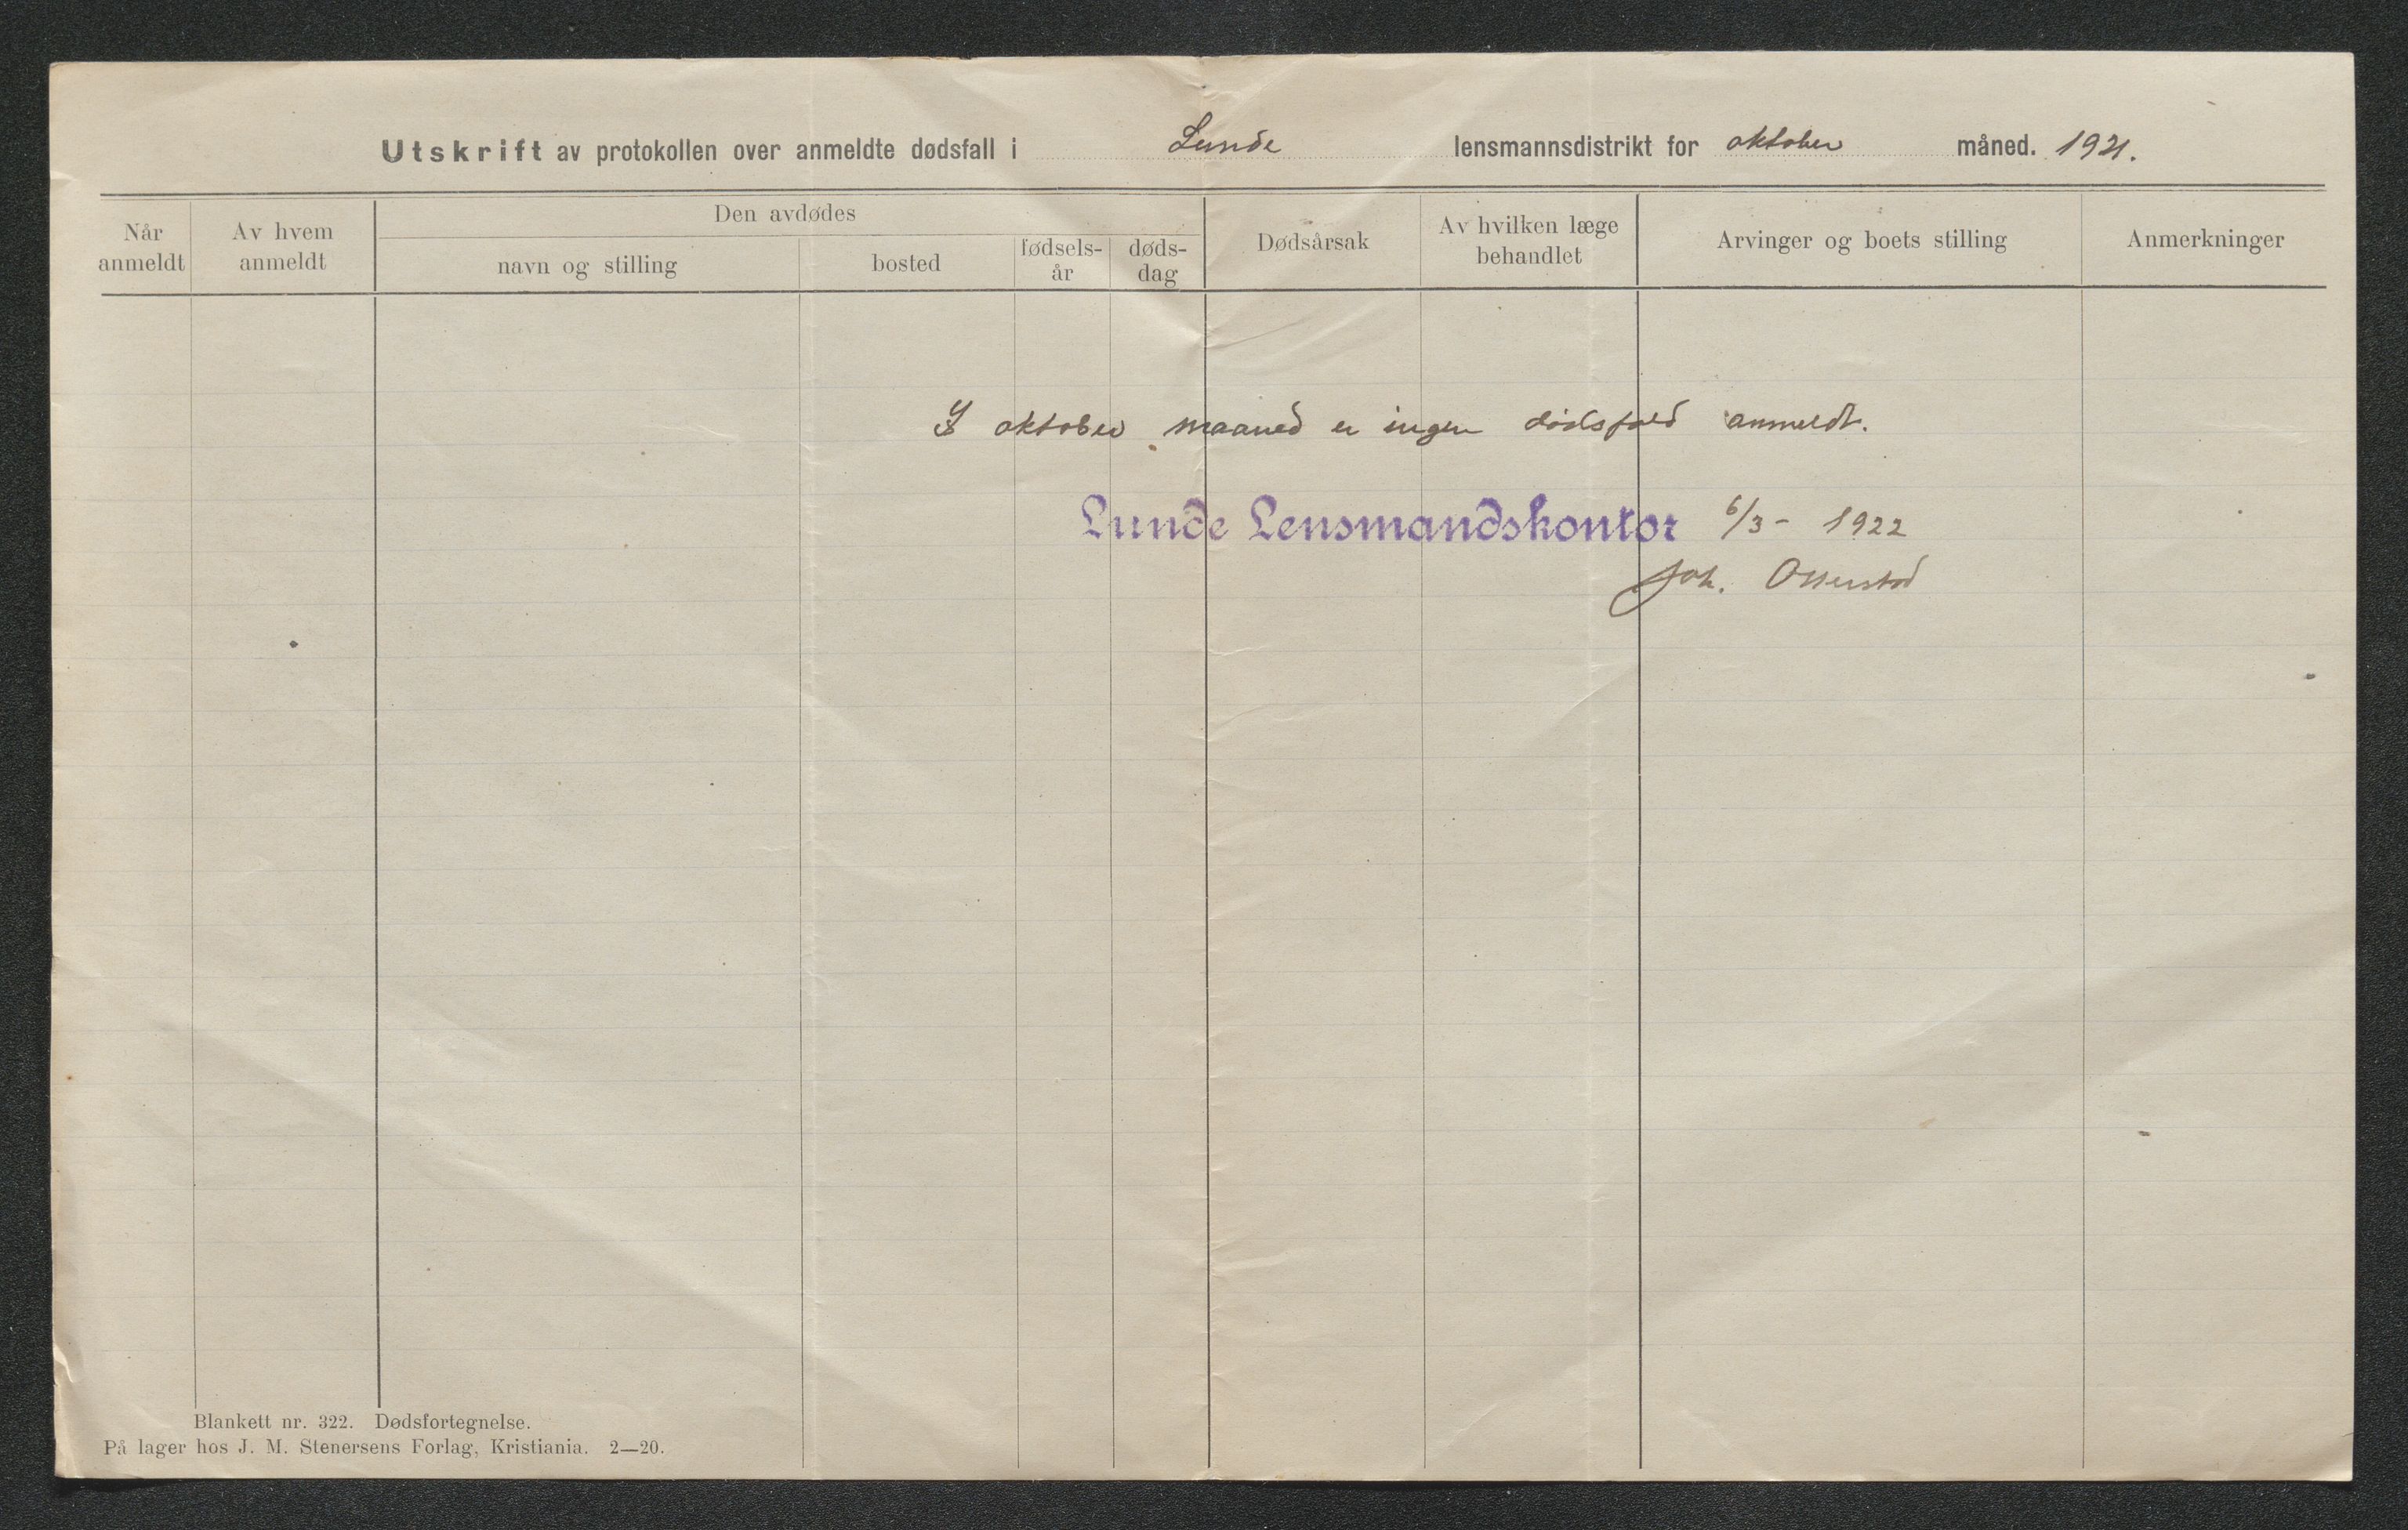 Utskrift av protokollen over anmeldte dødsfall i Lunde lensmannsdistrikt for oktober måned. 1921.
Når anmeldt
Av hvem anmeldt
Den avdødes
navn og stilling
bosted
fødsels-år
døds-dag
Dødsårsak
Av hvilken læge behandlet
Arvinger og boets stilling
Anmerkninger
I oktober maaned er ingen dødsfald anmeldt.
Lunde Lensmandskontor 6/3 - 1922
Joh.
Blankett nr. 322. Dødsfortegnelse.
På lager hos J. M. Stenersens Forlag, Kristiania. 2—20.